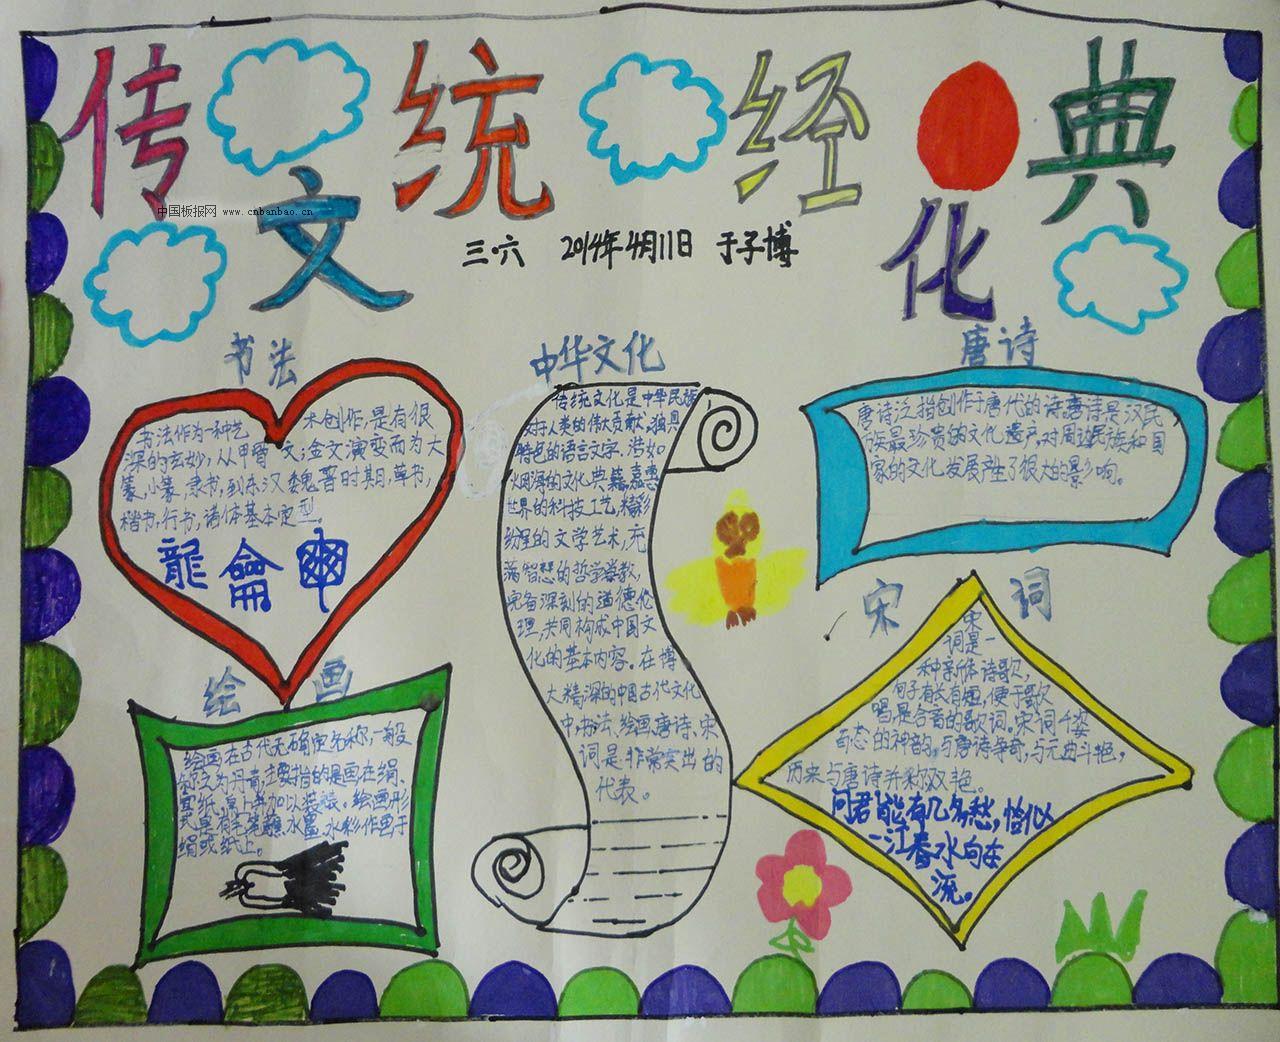 传 统 经 典
中国板报网 www.cnbanbao.cn
文 化
三·六 2014年4月11日 于子博
书法
书法作为一种艺术创作,是有很
深的玄妙,从甲骨文,金文演变而为大
篆,小篆,隶书,到东汉魏晋时期,草书,
楷书,行书,诸体基本定型。
龍龠
中华文化
传统文化是中华民族
对于人类的伟大贡献,独具
特色的语言文字,浩如
烟海的文化典籍,嘉惠
世界的科技工艺,精彩
纷呈的文学艺术,充
满智慧的哲学宗教,
完备深刻的道德伦
理,共同构成中国文
化的基本内容。在博
大精深的中国古代文化
中,书法、绘画、唐诗、宋
词是非常突出的
代表。
唐诗
唐诗泛指创作于唐代的诗,唐诗是汉民
族最珍贵的文化遗产,对周边民族和国
家的文化发展产生了很大的影响。
绘画
绘画在古代无确定名称,一般
称之为丹青,主要指的是画在绢、
宣纸、帛上并加以装裱。绘画形
式是有毛笔蘸水墨,水彩作画于
绢或纸上。
宋词
宋
词是一
种新体诗歌,
句子有长有短,便于歌
唱,是合音的歌词。宋词千姿
百态的神韵,与唐诗争奇,与元曲斗艳,
历来与唐诗并称双艳。
问君能有几多愁,恰似
一江春水向东
流。